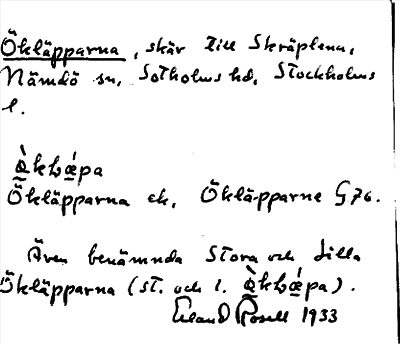 Ökläpparna, skär till Skräplenn,
Nämdö sn, Sotholms hd, Stockholms
l.
Ökläpparna ek, Ökläpparne G76.
Även benämnda Stora och Lilla
Ökläpparna (st. och l.
Erland Rosell 1933